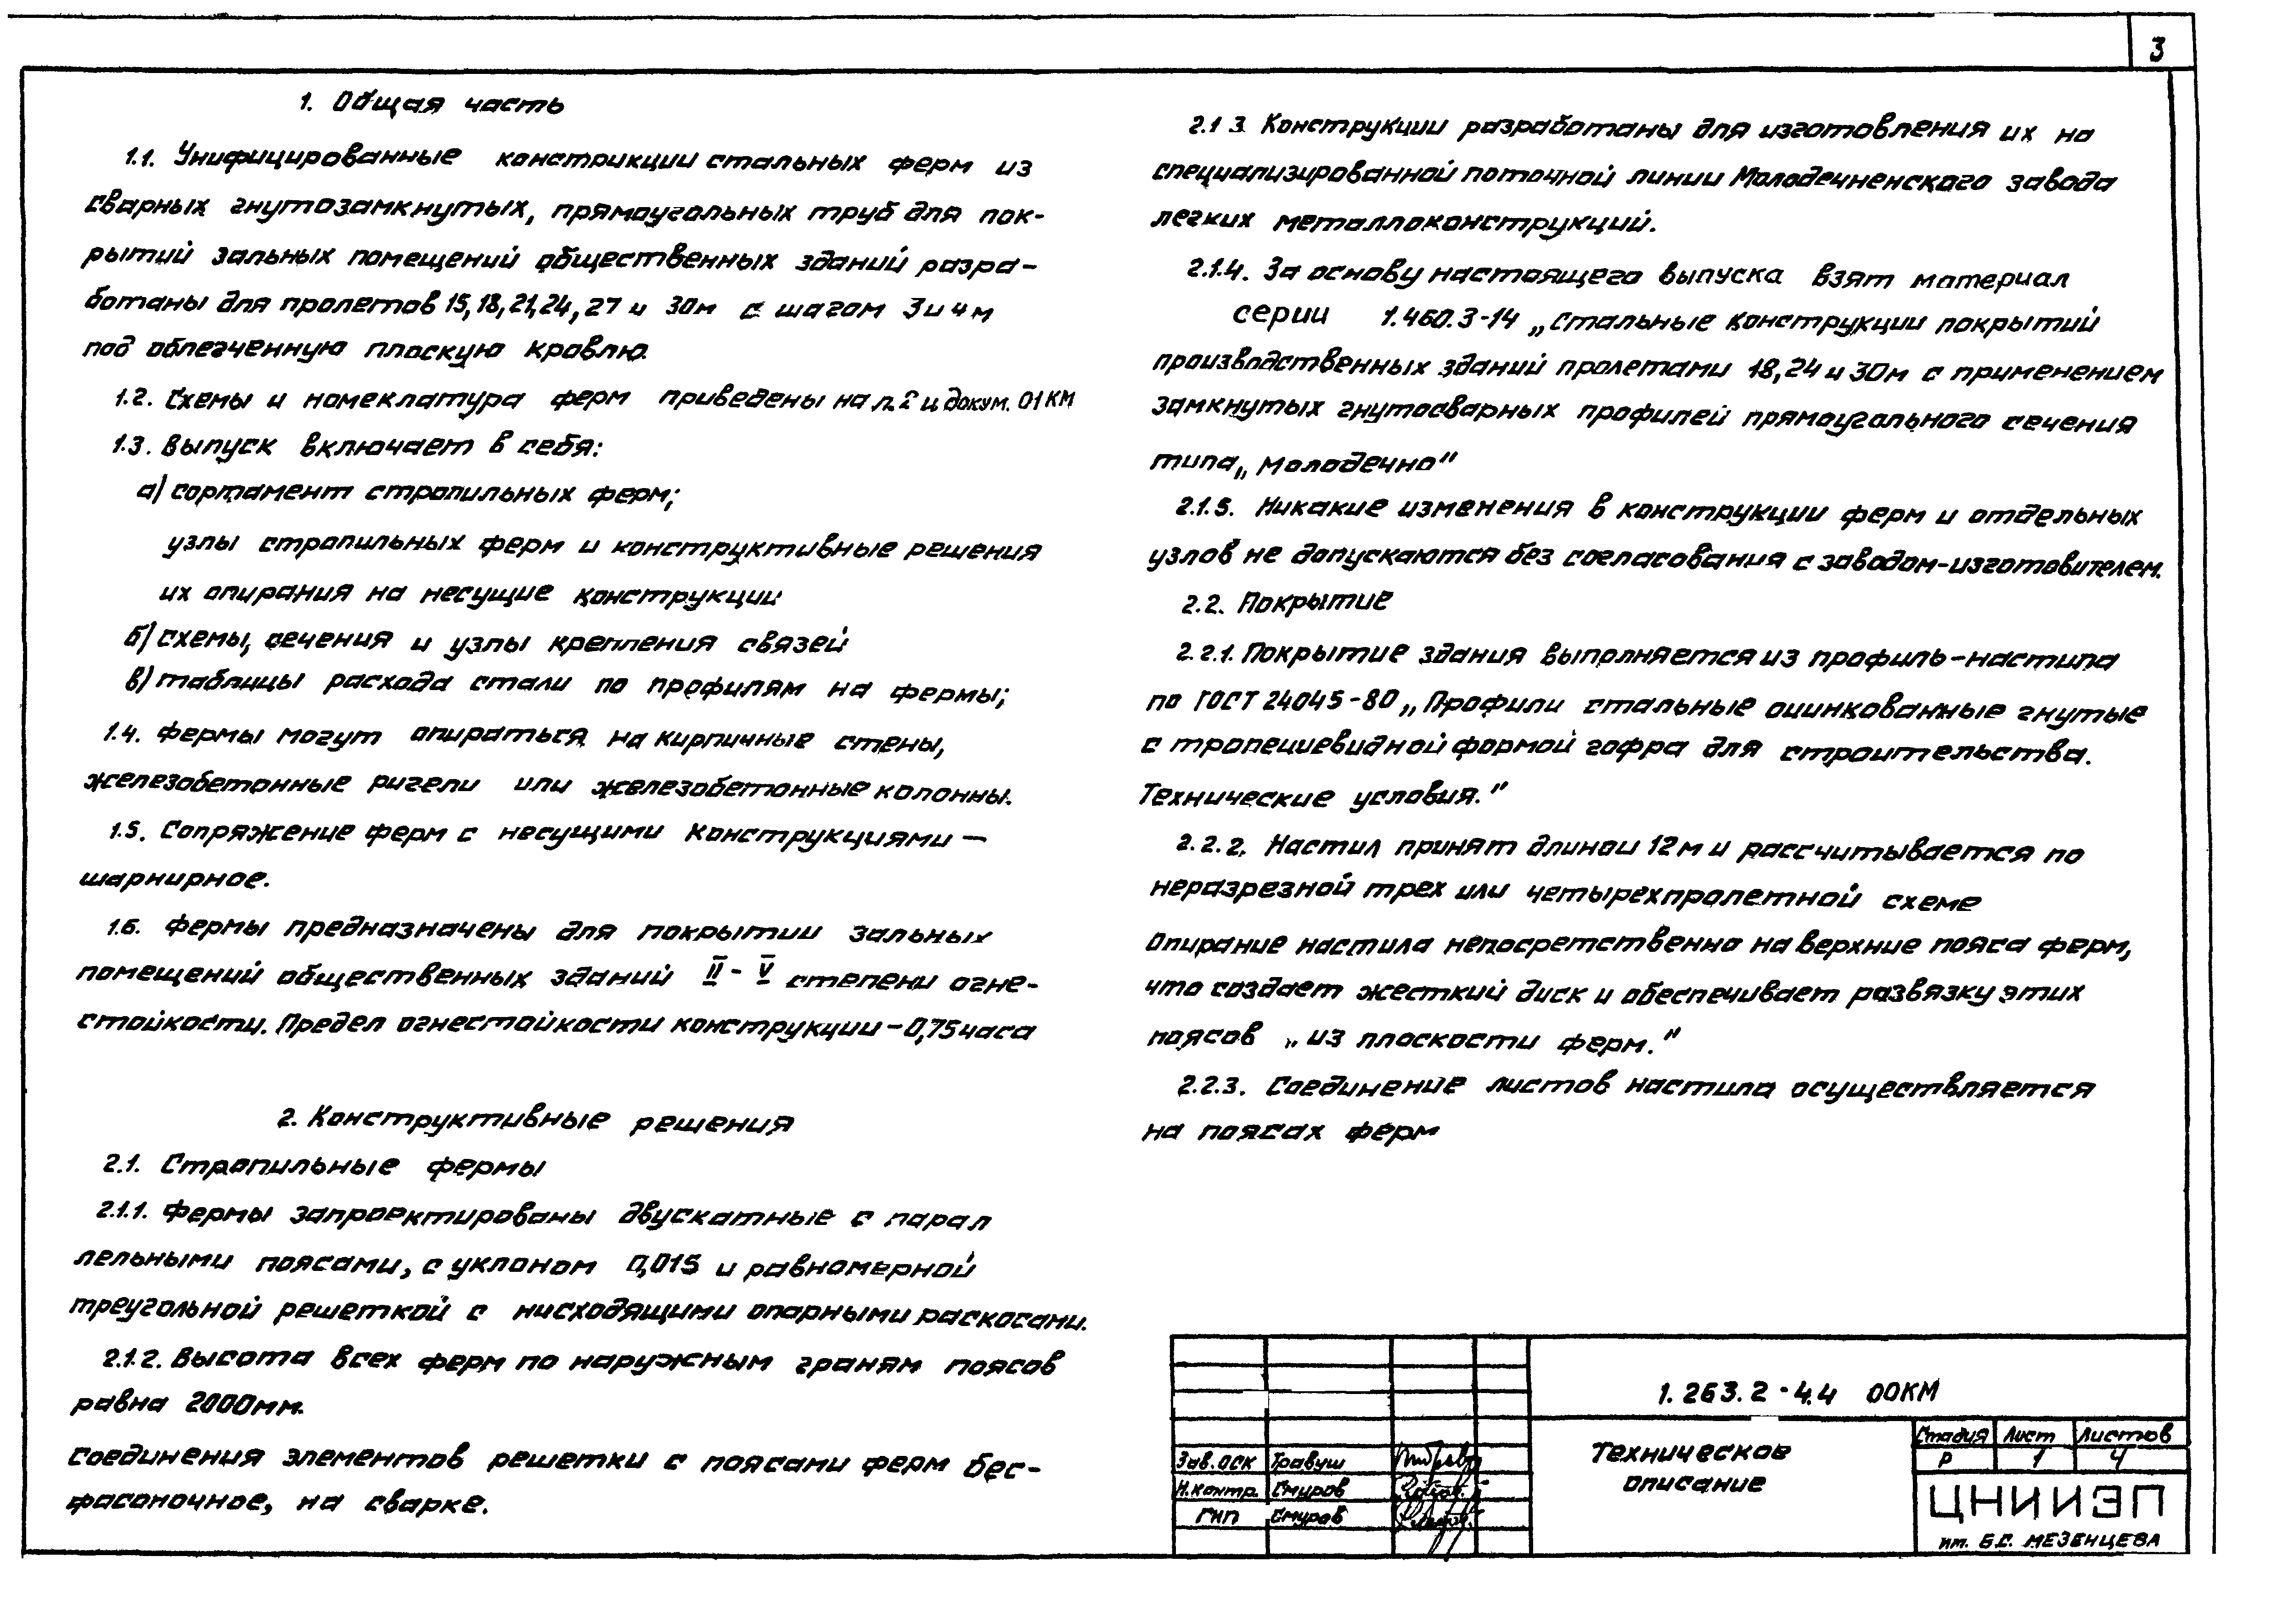 3
1. Общая часть
1.1. Унифицированные констрикции стальных ферм из
сварных гнутозамкнутых, прямоугольных труб для пок-
рытий зальных помещений общественных зданий разра-
ботаны для пролетов 15, 18, 21, 24, 27 и 30м с шагом 3 и 4 м
под облегченную плоскую кровлю.
1.2. Схемы и номеклатура ферм приведены на л. 2 и докум. 01 КМ
1.3. Выпуск включает в себя:
а) сортамент стропильных ферм;
узлы стропильных ферм и конструктивные решения
их опирания на несущие конструкции
б) схемы, сечения и узлы крепления связей
в) таблицы расхода стали по профилям на фермы;
1.4. Фермы могут опираться на кирпичные стены,
железобетонные ригели или железобетонные колонны.
1.5. Сопряжение ферм с несущими конструкциями —
шарнирное.
1.6. Фермы предназначены для покрытии зальных
помещений общественных зданий II - V степени огне-
стойкости. Предел огнестойкости конструкции - 0,75 часа
2. Конструктивные решения
2.1. Стропильные фермы
2.1.1. Фермы запроектированы двускатные с парал
лельными поясами, с уклоном 0,015 и равномерной
треугольной решеткой с нисходящими опорными раскосами.
2.1.2. Высота всех ферм по наружным граням поясов
равна 2000мм.
Соединения элементов решетки с поясами ферм бес-
фасоночное, на сварке.
2.1 3. Конструкции разработаны для изготовления их на
специализированной поточной линии Молодечненского завода
легких металлоконструкций.
2.1.4. За основу настоящего выпуска взят материал
серии 1.460.3-14 „Стальные конструкции покрытий
производственных зданий пролетами 18, 24 и 30м с применением
замкнутых гнутосварных профилей прямоугольного сечения
типа „Молодечно"
2.1.5. Никакие изменения в конструкции ферм и отдельных
узлов не допускаются без согласования с заводом-изготовителем.
2.2. Покрытие
2.2.1. Покрытие здания выполняется из профиль-настила
по ГОСТ 24045-80 „Профили стальные оцинкованные гнутые
с трапециевидной формой гофра для строительства.
Технические условия."
2.2.2. Настил принят длинои 12м и рассчитывается по
неразрезной трех или четырехпролетной схеме
Опирание настила непосретственно на верхние пояса ферм,
что создает жесткий диск и обеспечивает развязку этих
поясов „из плоскости ферм."
2.2.3. Соединение листов настила осуществляется
на поясах ферм
1.263.2-4.4 00КМ
Зав. ОСК Травуш
Н.контр. Смуров
ГИП Смуров
Техническое
описание
Стадия Лист Листов
Р 1 4
ЦНИИЭП
им. Б.С. МЕЗЕНЦЕВА